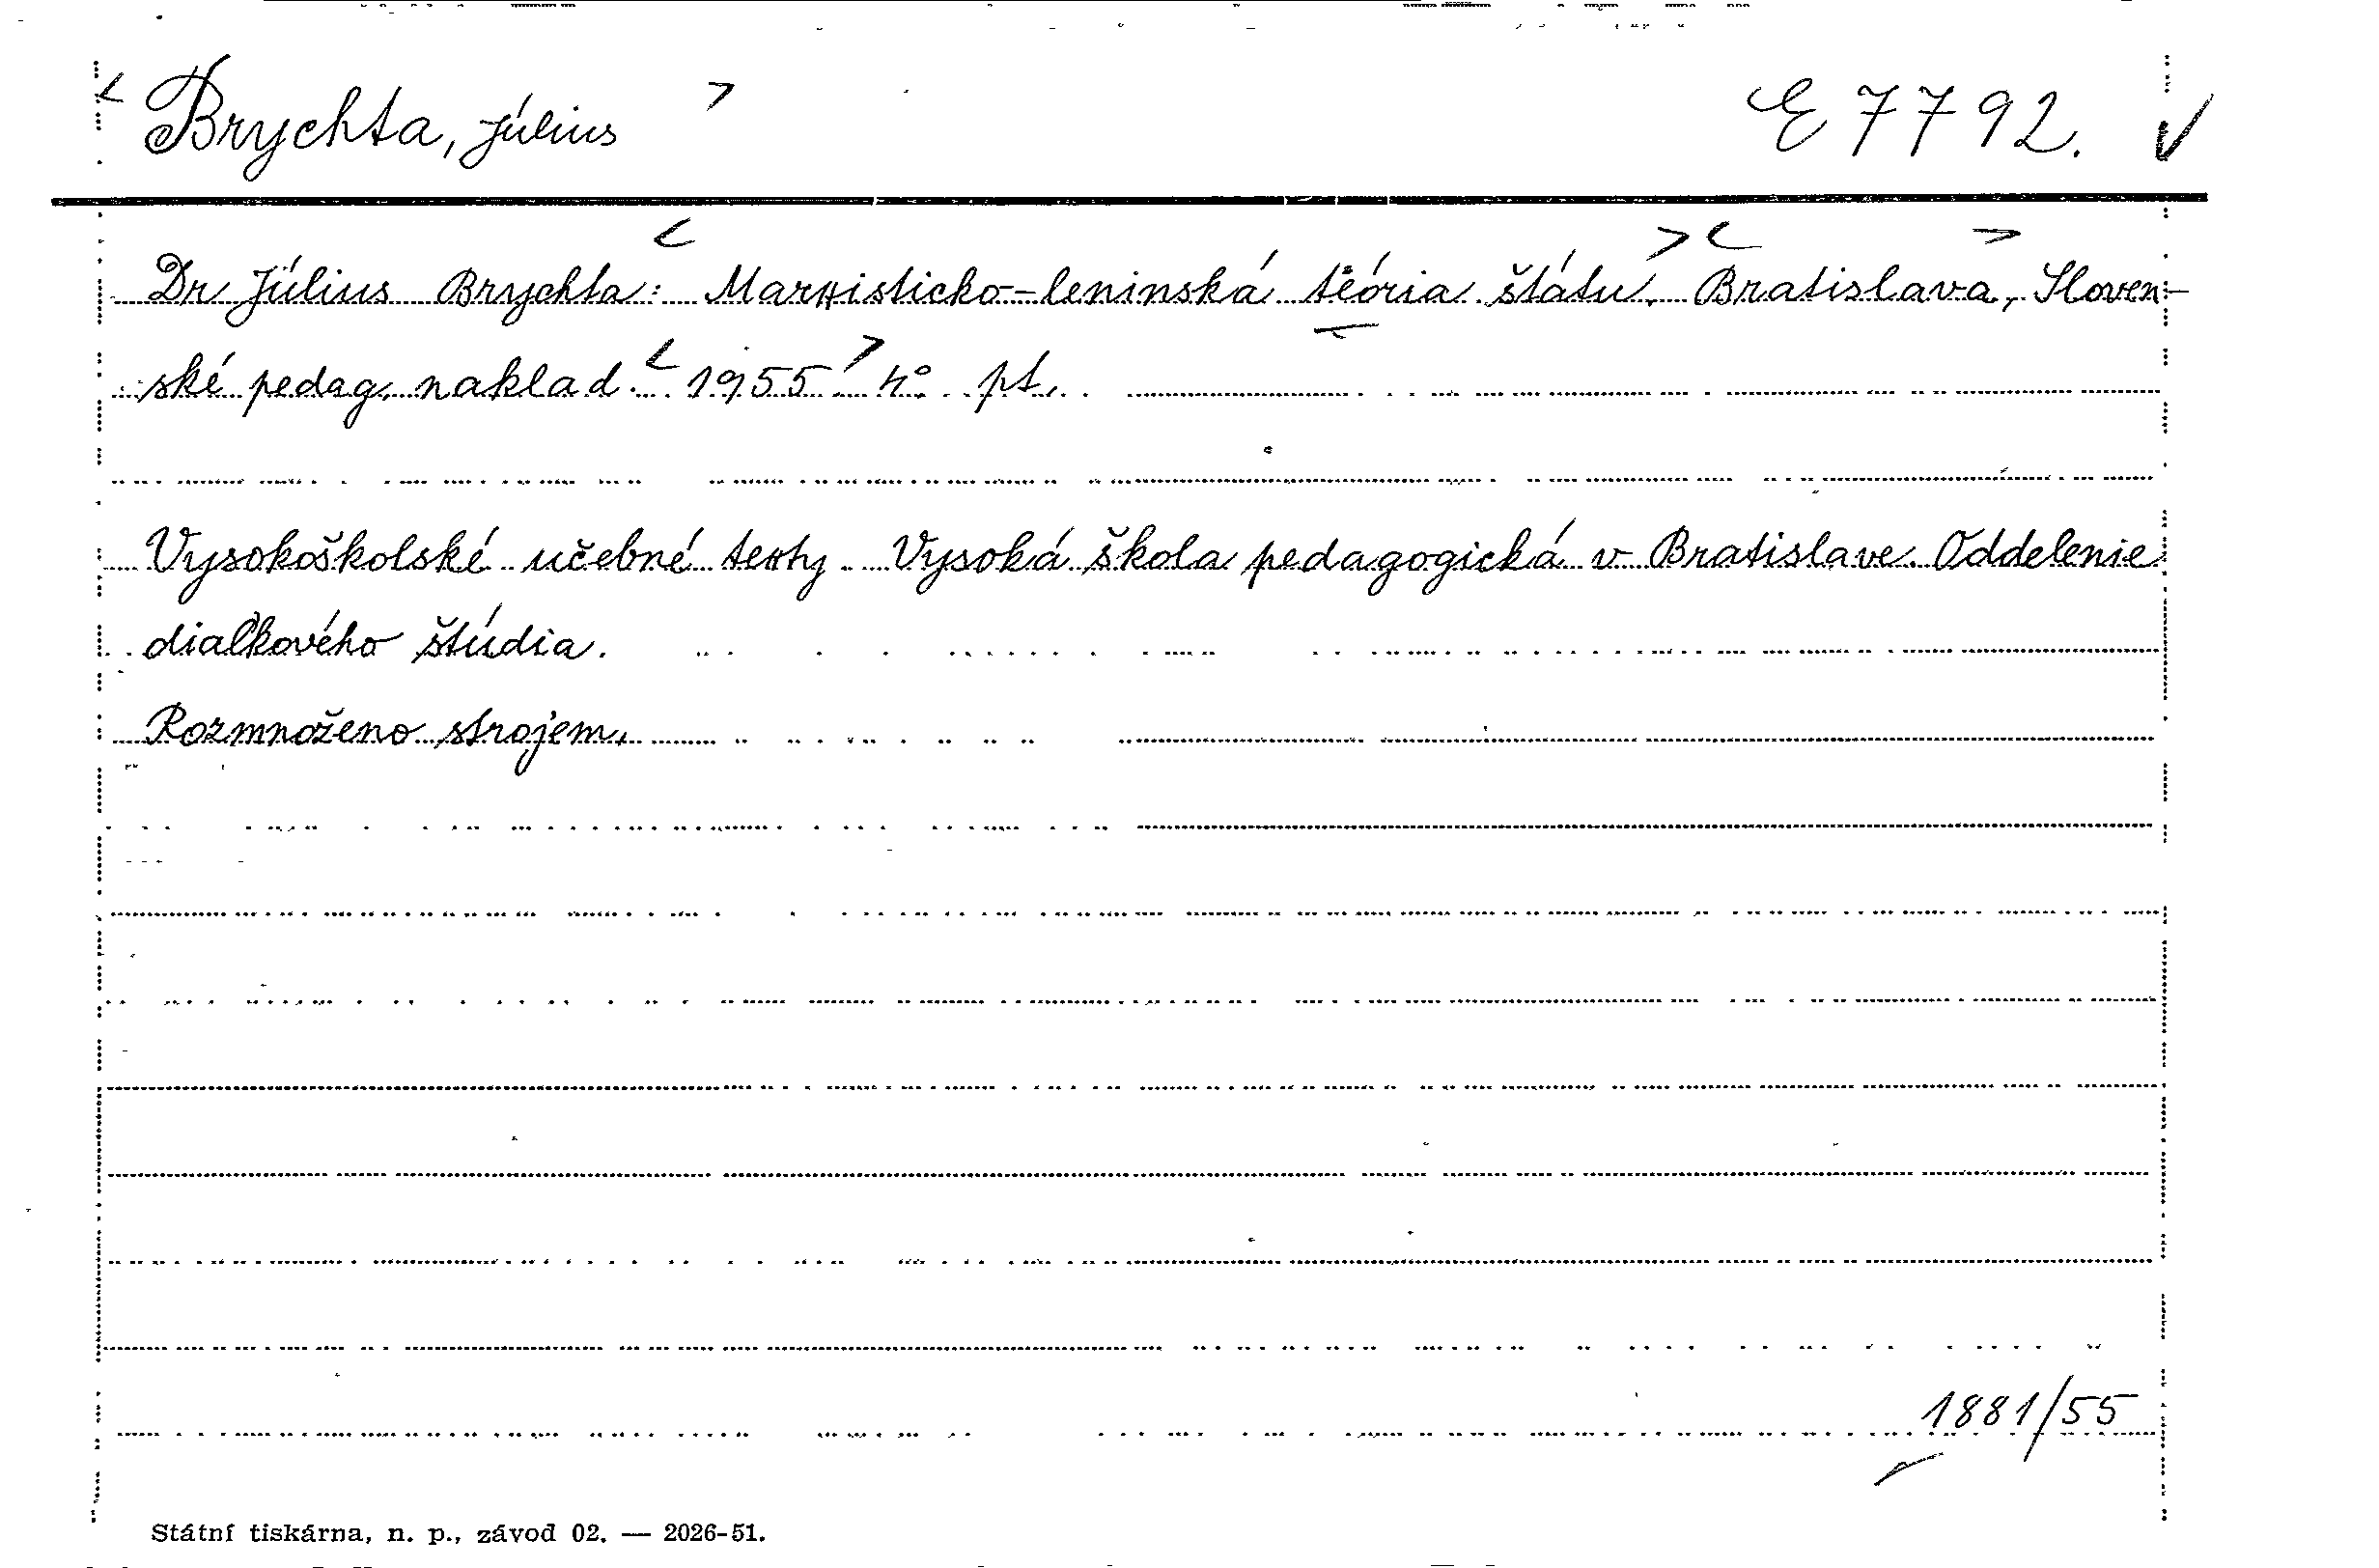 < Brychta, Július > E 7792. √
Dr Július Brychta: < Marxisticko-leninská teória štátu. > < Bratislava, > Sloven-
ské pedag. naklad. < 1955 > 4° pt.
Vysokoškolské učebné texty. Vysoká škola pedagogická v Bratislave. Oddelenie
diaľkového štúdia.
Rozmnoženo strojem.
1881/55
Státní tiskárna, n. p., závod 02. — 2026-51.